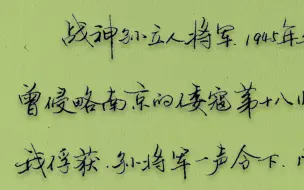 战神孙立人将军.1945年
曾侵略南京的倭寇第十八
我俘获.孙将军一声令下.